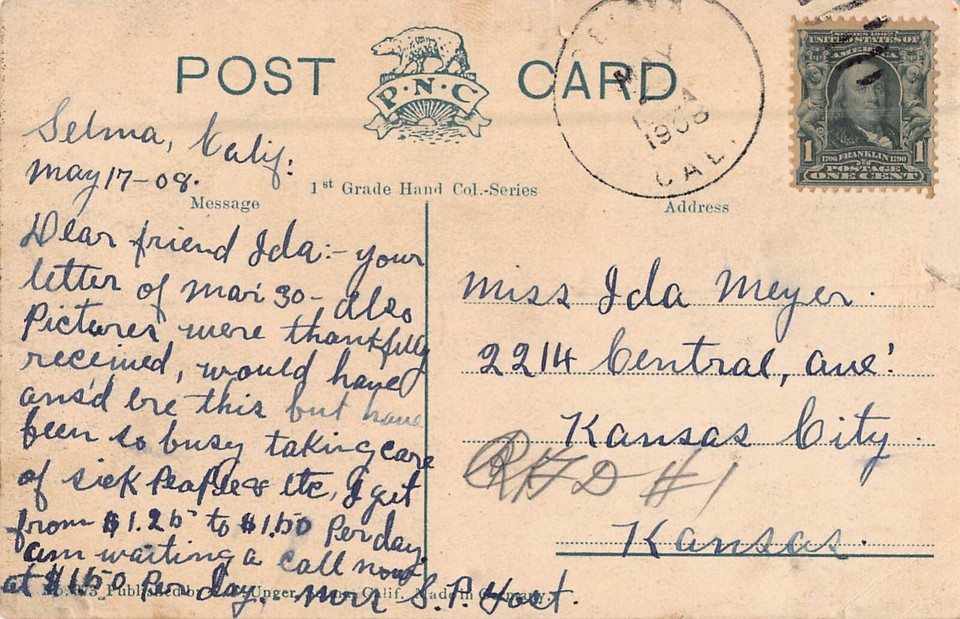 POST CARD
P·N·C
MAY
1908
CAL.
SERIES 1902
UNITED STATES OF
AMERICA
1 1
1706 FRANKLIN 1790
POSTAGE
ONE CENT
Selma, Calif:
May 17-08.
1st Grade Hand Col.-Series
Message
Address
Dear friend Ida:- your
letter of Mar 30- also
Pictures were thankfully
received, would have
ans'd ere this but have
been so busy taking care
of sick People & etc, I get
from $1.25 to $1.50 Per day
am waiting a call now
at $1.50 Per day. Mrs S. P. Yost.
Miss Ida Meyer.
2214 Central, ave!
Kansas City.
RFD #1
Kansas.
Published by Unger, Calif. Made in Germany.